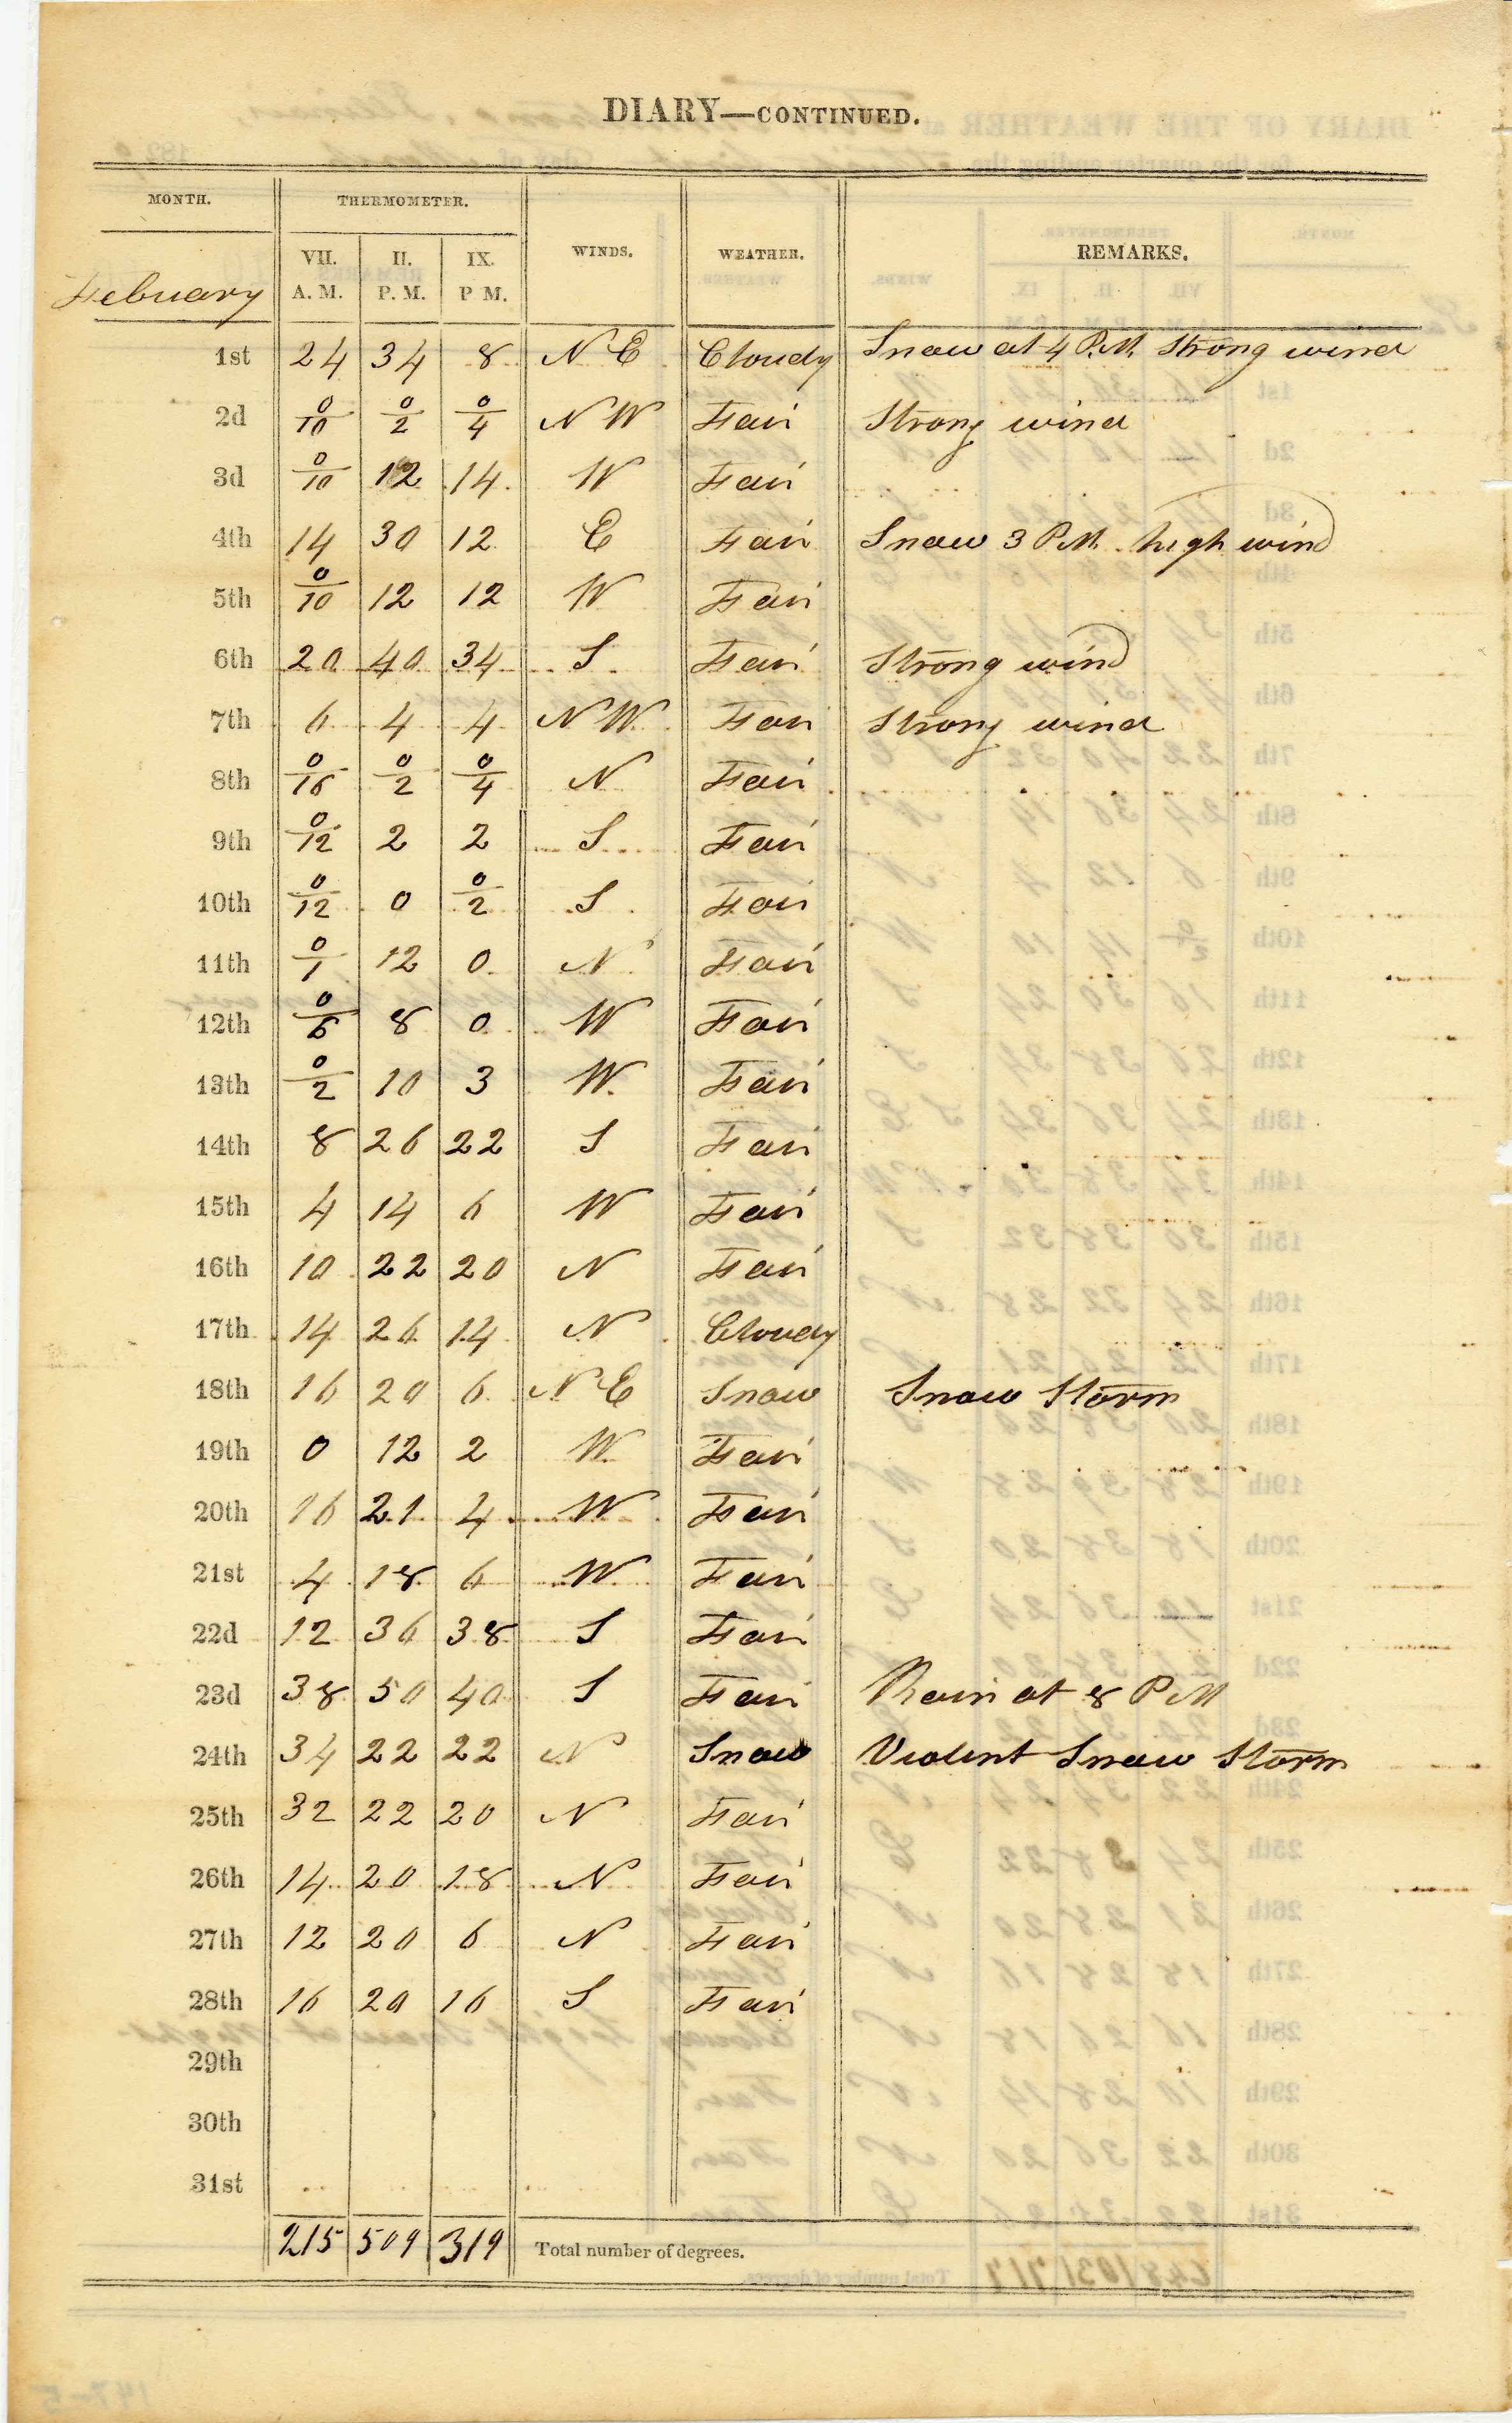 DIARY—CONTINUED.
MONTH. THERMOMETER. WINDS. WEATHER. REMARKS.
VII. A. M. II. P. M. IX. P M.
Febuary
1st 24 34 8 N E Cloudy Snow at 4 P.M. Strong wind
2d 0/10 0/2 0/4 N W Fair Strong wind
3d 0/10 12 14 W Fair
4th 14 30 12 E Fair Snow 3 P.M. high wind
5th 0/10 12 12 W Fair
6th 20 40 34 S Fair Strong wind
7th 6 4 4 N W Fair Strong wind
8th 0/16 0/2 0/4 N Fair
9th 0/12 2 2 S Fair
10th 0/12 0 0/2 S Fair
11th 0/1 12 0 N Fair
12th 0/6 8 0 W Fair
13th 0/2 10 3 W. Fair
14th 8 26 22 S Fair
15th 4 14 6 W Fair
16th 10 22 20 N Fair
17th 14 26 14 N Cloudy
18th 16 20 6 N E Snow Snow Storm
19th 0 12 2 W Fair
20th 16 21 4 W Fair
21st 4 18 6 W Fair
22d 12 36 38 S Fair
23d 38 50 40 S Fair Rain at 8 P M
24th 34 22 22 N Snow Violent Snow Storm
25th 32 22 20 N Fair
26th 14 20 18 N Fair
27th 12 20 6 N Fair
28th 16 20 16 S Fair
29th
30th
31st
215 509 319 Total number of degrees.